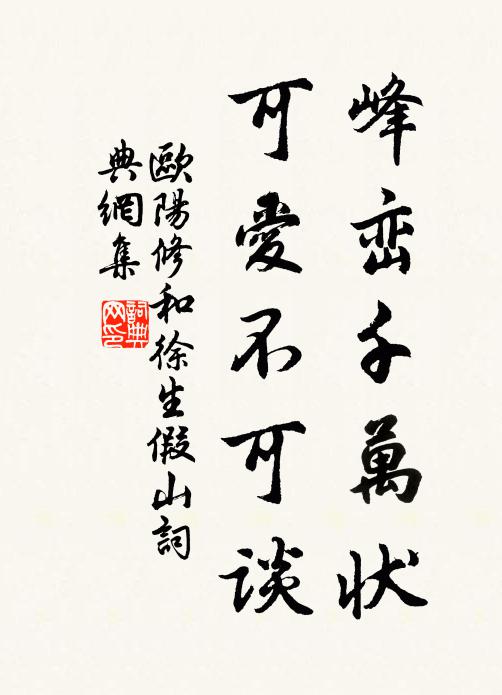 峰峦千萬状
可愛不可谈
歐陽修和徐生假山詞
典網集
詞典网印